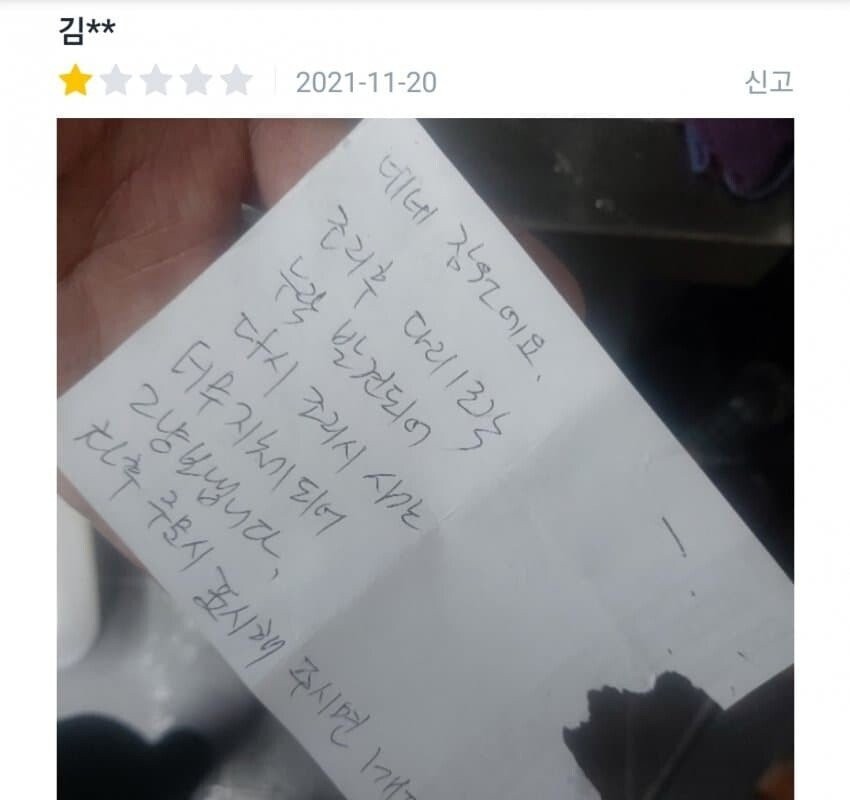 김**
2021-11-20
신고
네네 점이에요.
조리후 다리1조각
누락 발견되어
다시 조리시 시간
너무 지체되어
그냥보냅니다.
차후 주문시 표시해 주시면 1개